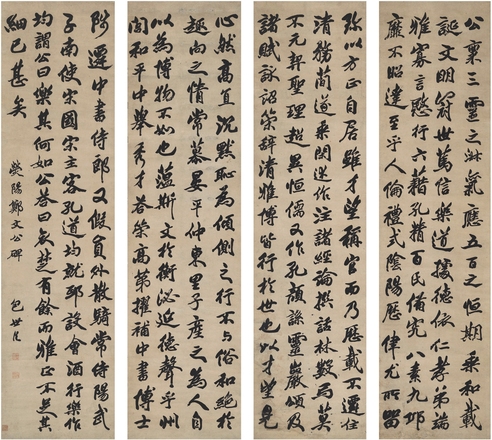 公稟三靈之淑氣應五百之恒期乘和載
誕文明冠世篤信樂道據德依仁孝弟端
雅寡言愍行六籍孔精百氏備究八素九邱
靡不昭達至乎人倫禮式陰陽歷律尤所留
弥以方正自居雖才望稱官而乃歷載不遷任
清務簡遂乘閑述作注諸經論撰話林數萬言莫
不元契聖理超異恒儒又作孔顏誄靈巖頌及
諸賦詠詔策辞清雅博皆行於世也以才望見
心然高直沉默恥為傾側之行不与俗和絕於
趣向之情常慕晏平仲東里子產之為人自
以為博物不如也蘊斯文於衡泌延德聲乎州
閭和平中舉秀才答策高第擢補中書博士
陟遷中書侍郎又假員外散騎常侍陽武
子南使宋國宋主客孔道均就邸設會酒行樂作
均謂公曰樂其何如公答曰哀楚有餘而雅正不足其
細已甚矣
熒陽鄭文公碑
包世臣